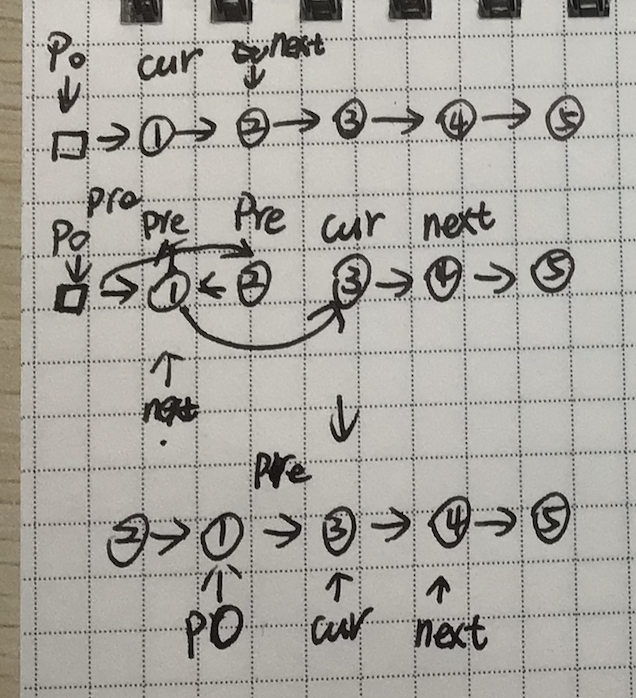 Po cur next
① ② ③ ④ ⑤
pro
Po pre Pre cur next
① ② ③ ④ ⑤
next
pre
② ① ③ ④ ⑤
PO cur next